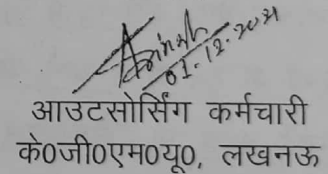 01-12-2021
आउटसोर्सिंग कर्मचारी
के०जी०एम०यू०, लखनऊ